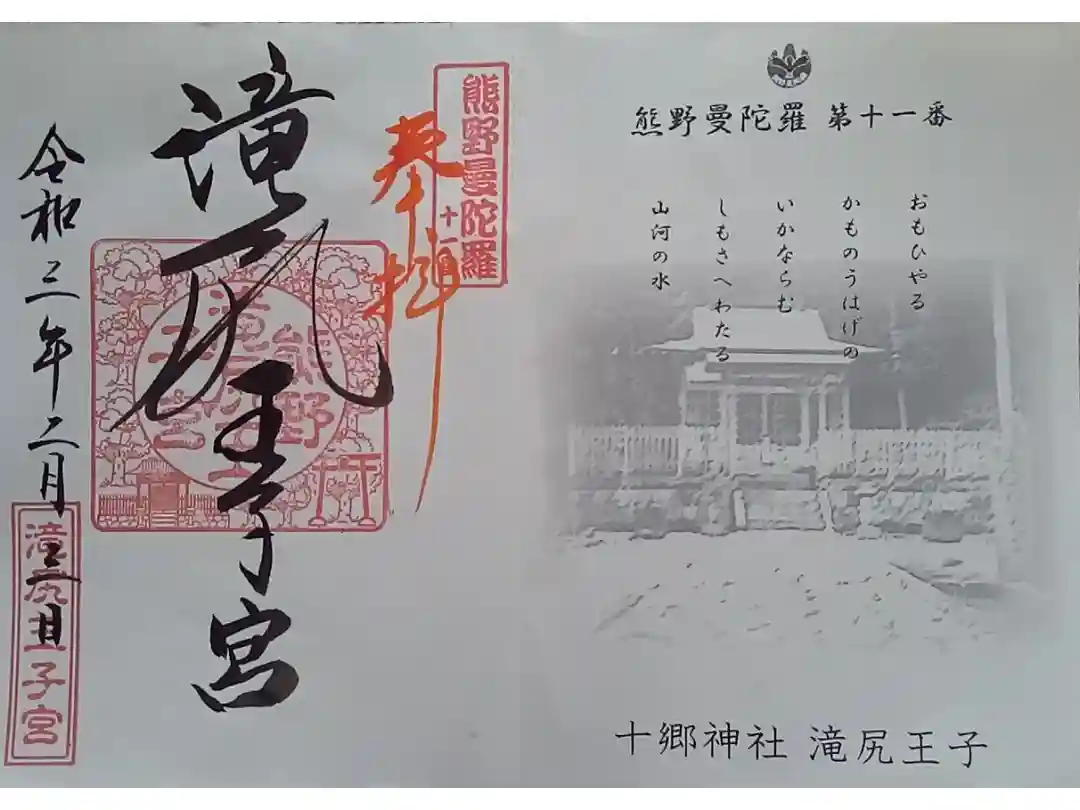 熊野曼陀羅 第十一番
おもひやる
かものうはげの
いかならむ
しもさへわたる
山河の水
十郷神社 滝尻王子
熊野曼陀羅
十一番
奉拝
滝尻王子宮
令和三年二月
滝尻王子宮